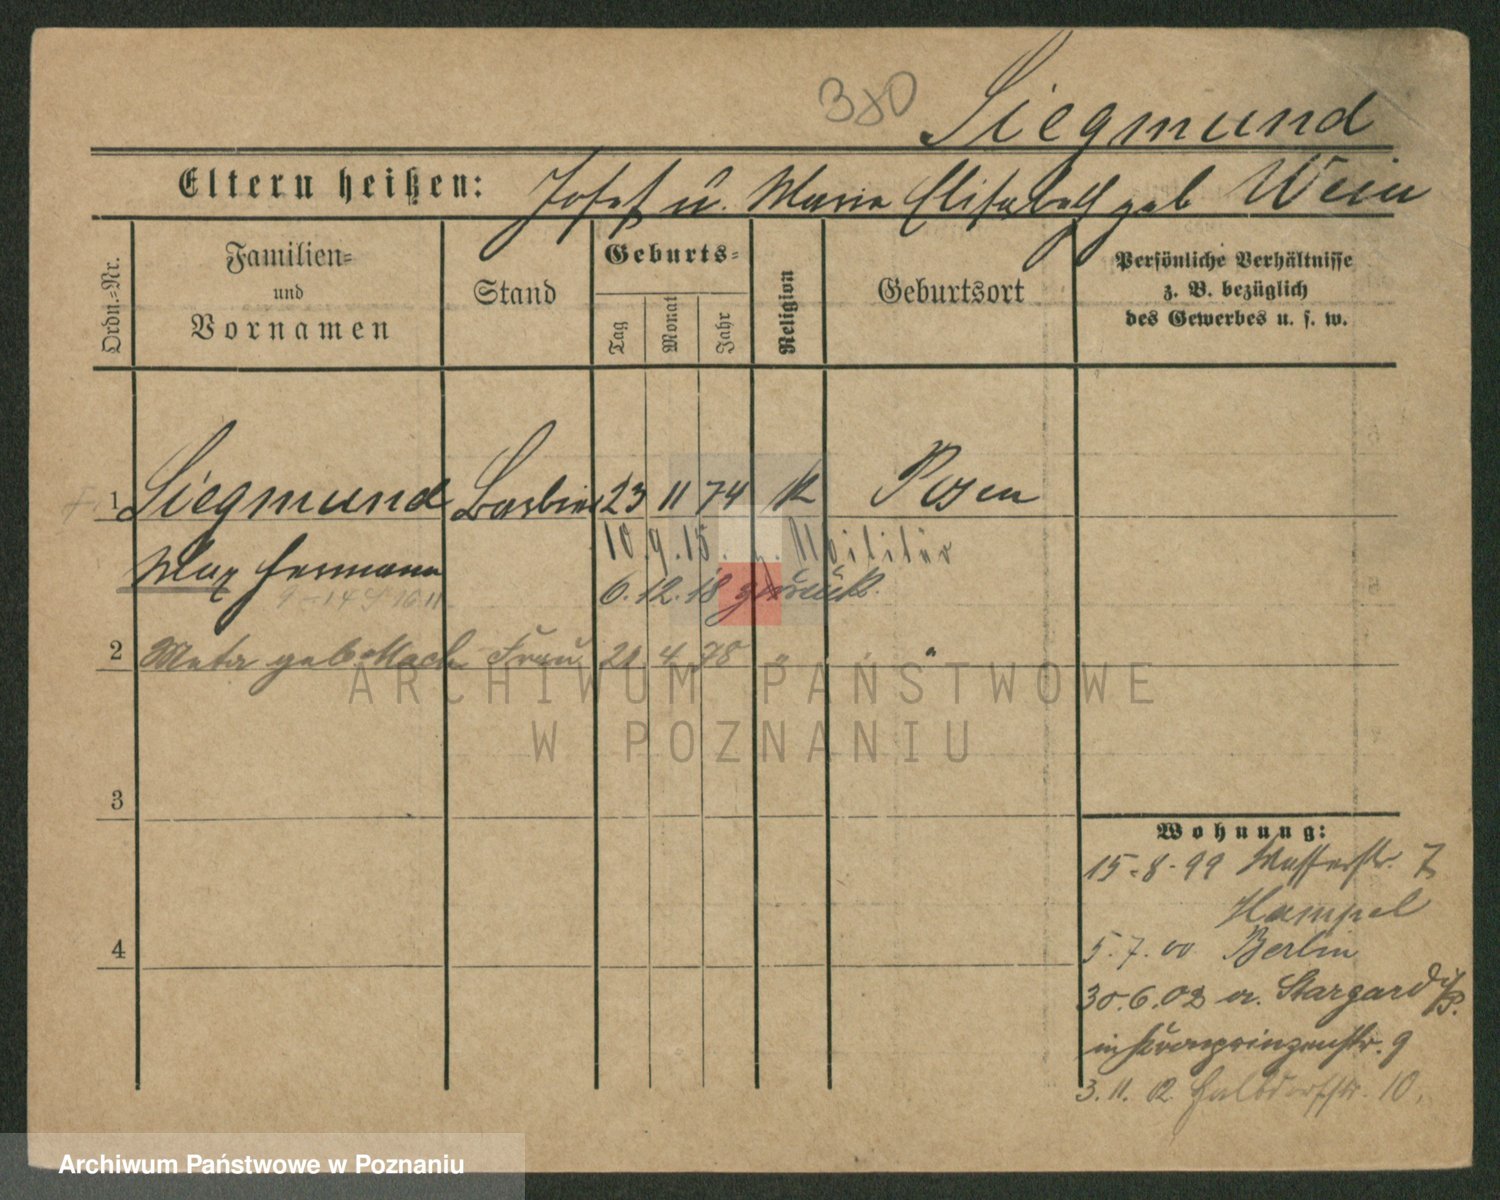 380 Siegmund
Eltern heißen: Josef u. Maria Elisabeth geb Wein
Ordn.=Nr.
Familien=
und
Vornamen
Stand
Geburts=
Tag
Monat
Jahr
Religion
Geburtsort
Persönliche Verhältnisse
z. B. bezüglich
des Gewerbes u. s. w.
1 Siegmund Barbier 23 11 74 K Posen
Max Hermann
10.9.15. z. Militär
6.12.18 zurück.
2 Meta geb Mach Frau 21 4 78 " "
3
4
Wohnung:
15-8-99 Wasserstr. 7
Hampel
5.7.00 Berlin
30.6.02 a. Stargard i/P.
in Kronprinzenstr. 9
3.11.02 Halbdorfstr. 10.
ARCHIWUM PAŃSTWOWE
W POZNANIU
Archiwum Państwowe w Poznaniu